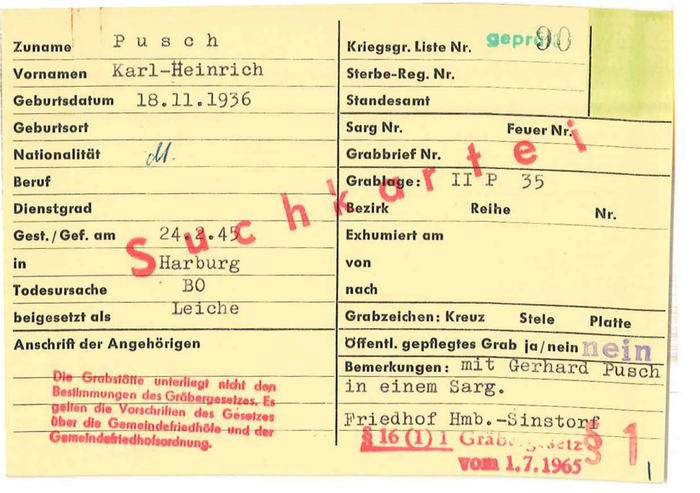 Zuname Pusch
Vornamen Karl-Heinrich
Geburtsdatum 18.11.1936
Geburtsort
Nationalität dt.
Beruf
Dienstgrad
Gest./Gef. am 24.2.45
in Harburg
Todesursache BO
beigesetzt als Leiche
Anschrift der Angehörigen
Die Grabstätte unterliegt nicht den
Bestimmungen des Gräbergesetzes. Es
gelten die Vorschriften des Gesetzes
über die Gemeindefriedhöfe und der
Gemeindefriedhofsordnung.
Suchkartei
Kriegsgr. Liste Nr. geprüft 90
Sterbe-Reg. Nr.
Standesamt
Sarg Nr. Feuer Nr.
Grabbrief Nr.
Grablage: II P 35
Bezirk Reihe Nr.
Exhumiert am
von
nach
Grabzeichen: Kreuz Stele Platte
Öffentl. gepflegtes Grab ja/nein nein
Bemerkungen: mit Gerhard Pusch
in einem Sarg.
Friedhof Hmb.-Sinstorf
§ 16 (1) 1 Gräbergesetz § 1
vom 1.7.1965